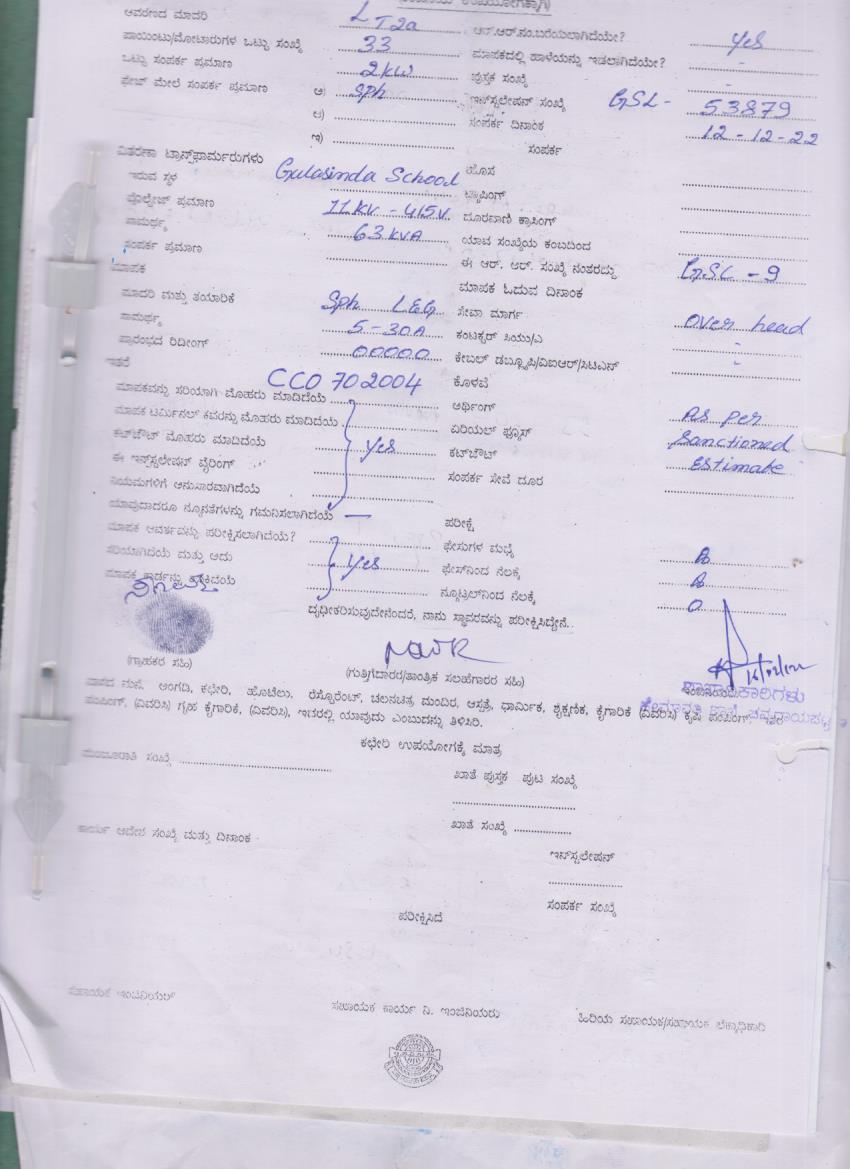 ಆವರಣದ ಮಾದರಿ LT2a ಆರ್.ಆರ್.ನಂ.ಬರೆಯಲಾಗಿದೆಯೇ? yes
ಪಾಯಿಂಟು/ಮೋಟಾರುಗಳ ಒಟ್ಟು ಸಂಖ್ಯೆ 33 ಮಾಪಕದಲ್ಲಿ ಹಾಳೆಯನ್ನು ಇಡಲಾಗಿದೆಯೇ? -
ಒಟ್ಟು ಸಂಪರ್ಕ ಪ್ರಮಾಣ 2kw ಪುಸ್ತಕ ಸಂಖ್ಯೆ -
ಫೇಜ್ ಮೇಲೆ ಸಂಪರ್ಕ ಪ್ರಮಾಣ ಅ) sph ಇನ್‌ಸ್ಟಲೇಷನ್ ಸಂಖ್ಯೆ GSL- 53879
ಆ) ಸಂಪರ್ಕ ದಿನಾಂಕ 12-12-22
ಇ) ಸಂಪರ್ಕ
ವಿತರಣಾ ಟ್ರಾನ್ಸ್‌ಫಾರ್ಮರುಗಳು ಹೊಸ
ಇರುವ ಸ್ಥಳ Gulasinda School ಟ್ಯಾಪಿಂಗ್
ವೋಲ್ಟೇಜ್ ಪ್ರಮಾಣ 11kv - 415v. ದೂರವಾಣಿ ಕ್ರಾಸಿಂಗ್
ಸಾಮರ್ಥ್ಯ 63kvA ಯಾವ ಸಂಖ್ಯೆಯ ಕಂಬದಿಂದ
ಸಂಪರ್ಕ ಪ್ರಮಾಣ ಈ ಆರ್. ಆರ್. ಸಂಖ್ಯೆ ನಂತರದ್ದು GSL - 9
ಮಾಪಕ ಮಾಪಕ ಓದುವ ದಿನಾಂಕ
ಮಾದರಿ ಮತ್ತು ತಯಾರಿಕೆ Sph L&G ಸೇವಾ ಮಾರ್ಗ over head
ಸಾಮರ್ಥ್ಯ 5-30A ಕಂಟಕ್ಟರ್ ಸಿಯು/ಎ -
ಪ್ರಾರಂಭದ ರಿಡೀಂಗ್ 00000 ಕೇಬಲ್ ಡಬ್ಲ್ಯೂಪಿ/ವಿಐಆರ್/ಸಿಟಿಎಸ್ -
ಇತರೆ CCO 702004 ಕೊಳವೆ
ಮಾಪಕವನ್ನು ಸರಿಯಾಗಿ ಮೊಹರು ಮಾಡಿದೆಯೆ ಅರ್ಥಿಂಗ್ As per
ಮಾಪಕ ಟರ್ಮಿನಲ್ ಕವರನ್ನು ಮೊಹರು ಮಾಡಿದೆಯೆ ಏರಿಯಲ್ ಫ್ಯೂಸ್ sanctioned
ಕಟ್‌ಔಟ್ ಮೊಹರು ಮಾಡಿದೆಯೆ yes ಕಟ್‌ಔಟ್ estimate
ಈ ಇನ್‌ಸ್ಟಲೇಷನ್ ವೈರಿಂಗ್ ಸಂಪರ್ಕ ಸೇವೆ ದೂರ
ನಿಯಮಗಳಿಗೆ ಅನುಸಾರವಾಗಿದೆಯೆ
ಯಾವುದಾದರೂ ನ್ಯೂನತೆಗಳನ್ನು ಗಮನಿಸಲಾಗಿದೆಯೆ — ಪರೀಕ್ಷೆ
ಮಾಪಕ ಆವರ್ತವನ್ನು ಪರೀಕ್ಷಿಸಲಾಗಿದೆಯೆ? ಫೇಸುಗಳ ಮಧ್ಯೆ
ಸರಿಯಾಗಿದೆಯೆ ಮತ್ತು ಅದು yes ಫೇಸ್‌ನಿಂದ ನೆಲಕ್ಕೆ
ಮಾಪಕ ಕಾರ್ಡನ್ನು ನ್ಯೂಟ್ರಲ್‌ನಿಂದ ನೆಲಕ್ಕೆ 0
ದೃಢೀಕರಿಸುವುದೇನೆಂದರೆ, ನಾನು ಸ್ಥಾವರವನ್ನು ಪರೀಕ್ಷಿಸಿದ್ದೇನೆ..
(ಗ್ರಾಹಕರ ಸಹಿ) (ಗುತ್ತಿಗೆದಾರರ/ತಾಂತ್ರಿಕ ಸಲಹೆಗಾರರ ಸಹಿ)
ವಾಸದ ಮನೆ, ಅಂಗಡಿ, ಕಛೇರಿ, ಹೊಟೇಲು, ರೆಸ್ಟೊರೆಂಟ್, ಚಲನಚಿತ್ರ ಮಂದಿರ, ಆಸ್ಪತ್ರೆ, ಧಾರ್ಮಿಕ, ಶೈಕ್ಷಣಿಕ, ಕೈಗಾರಿಕೆ (ವಿವರಿಸಿ) ಕೃಷಿ ಪಂಪಿಂಗ್, ಇತರೆ
ಪಂಪಿಂಗ್, (ವಿವರಿಸಿ) ಗೃಹ ಕೈಗಾರಿಕೆ, (ವಿವರಿಸಿ), ಇದರಲ್ಲಿ ಯಾವುದು ಎಂಬುದನ್ನು ತಿಳಿಸಿರಿ.
ಕಛೇರಿ ಉಪಯೋಗಕ್ಕೆ ಮಾತ್ರ
ಮಂಜೂರಾತಿ ಸಂಖ್ಯೆ ಖಾತೆ ಪುಸ್ತಕ ಪುಟ ಸಂಖ್ಯೆ
ಖಾತೆ ಸಂಖ್ಯೆ
ಕಾರ್ಯ ಆದೇಶ ಸಂಖ್ಯೆ ಮತ್ತು ದಿನಾಂಕ
ಇನ್‌ಸ್ಟಲೇಷನ್
ಸಂಪರ್ಕ ಸಂಖ್ಯೆ
ಪರೀಕ್ಷಿಸಿದೆ
ಸಹಾಯಕ ಇಂಜಿನಿಯರ್ ಸಹಾಯಕ ಕಾರ್ಯ ನಿ. ಇಂಜಿನಿಯರು ಹಿರಿಯ ಸಹಾಯಕ/ಸಹಾಯಕ ಲೆಕ್ಕಾಧಿಕಾರಿ